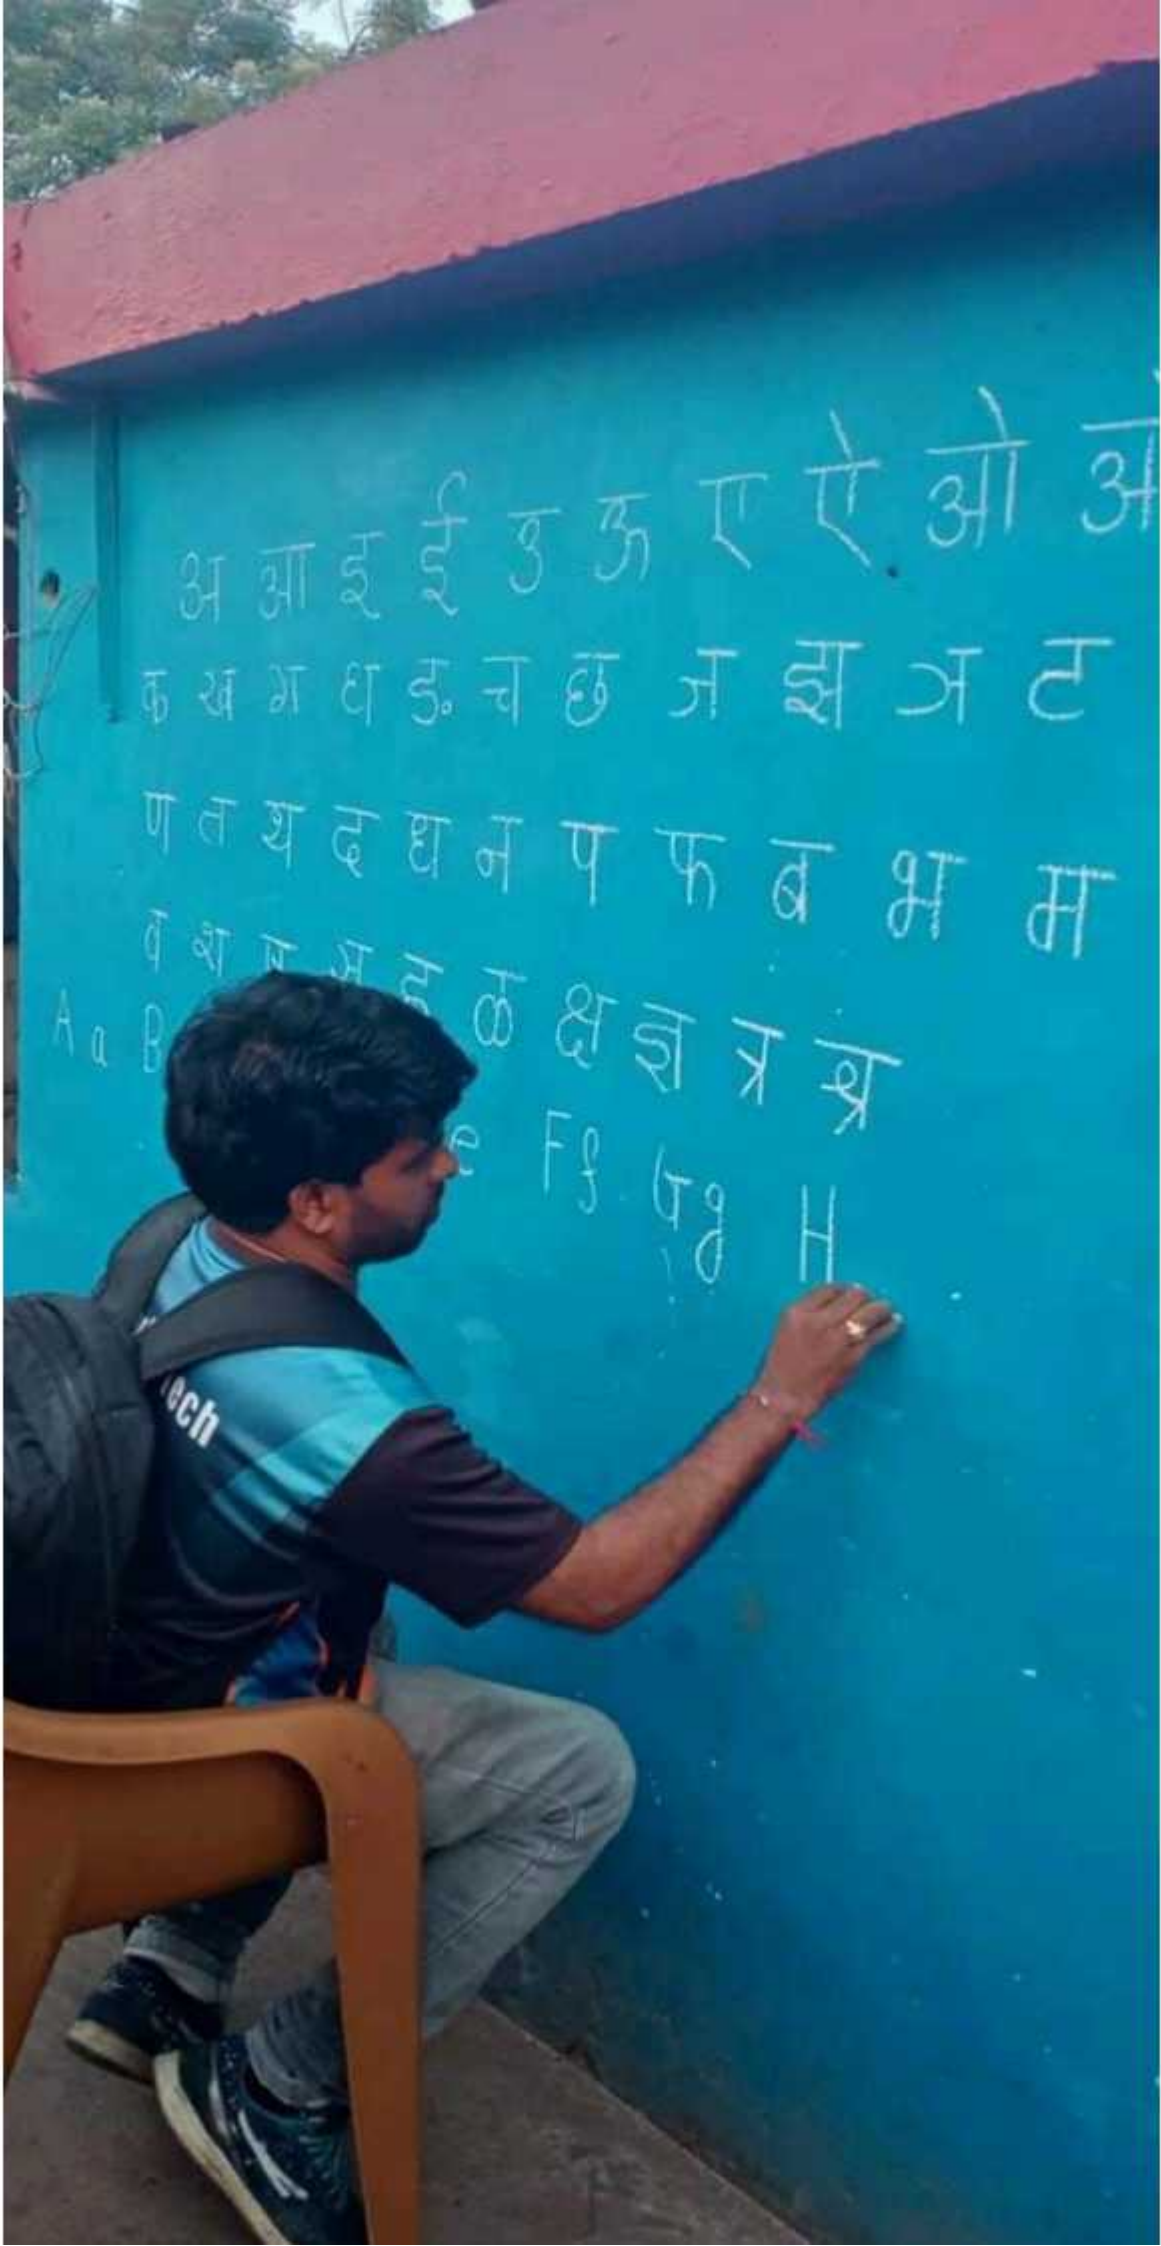 अ आ इ ई उ ऊ ए ऐ ओ
क ख ग घ ङ च छ ज झ ञ ट
ण त थ द ध न प फ ब भ म
व श ष स ह ळ क्ष ज्ञ त्र श्र
A a B e F f G g H
ech